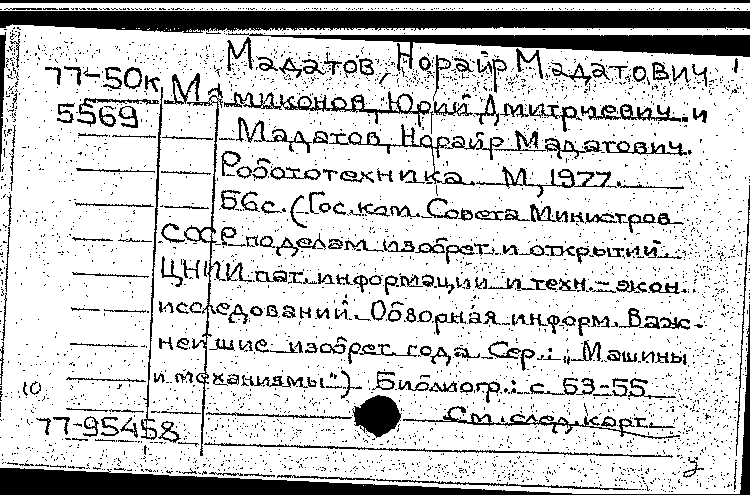 Мадатов, Норайр Мадатович
77-50к Мамиконов, Юрий Дмитриевич и
5569 Мадатов, Норайр Мадатович.
Робототехника. М., 1977.
56с. (Гос. ком. Совета Министров
СССР по делам изобрет. и открытий.
ЦНИИ пат. информации и техн.-экон.
исследований. Обзорная информ. Важ-
нейшие изобрет. года. Сер.: „Машины
и механизмы") Библиогр.: с. 53-55
10
См. след. карт.
77-95458